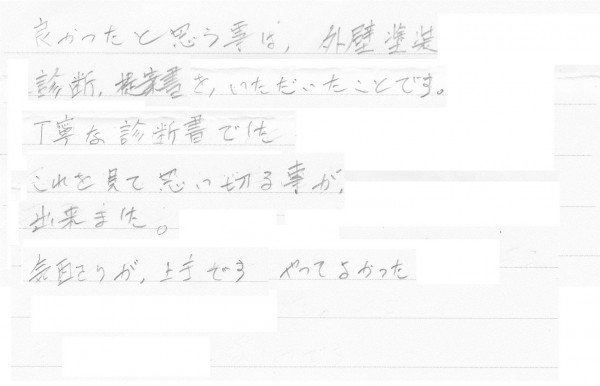 良かったと思う事は、外壁塗装
診断、提案書を、いただいたことです。
丁寧な診断書でした
これを見て思い切る事が、
出来ました。
気配りが、上手です やってよかった